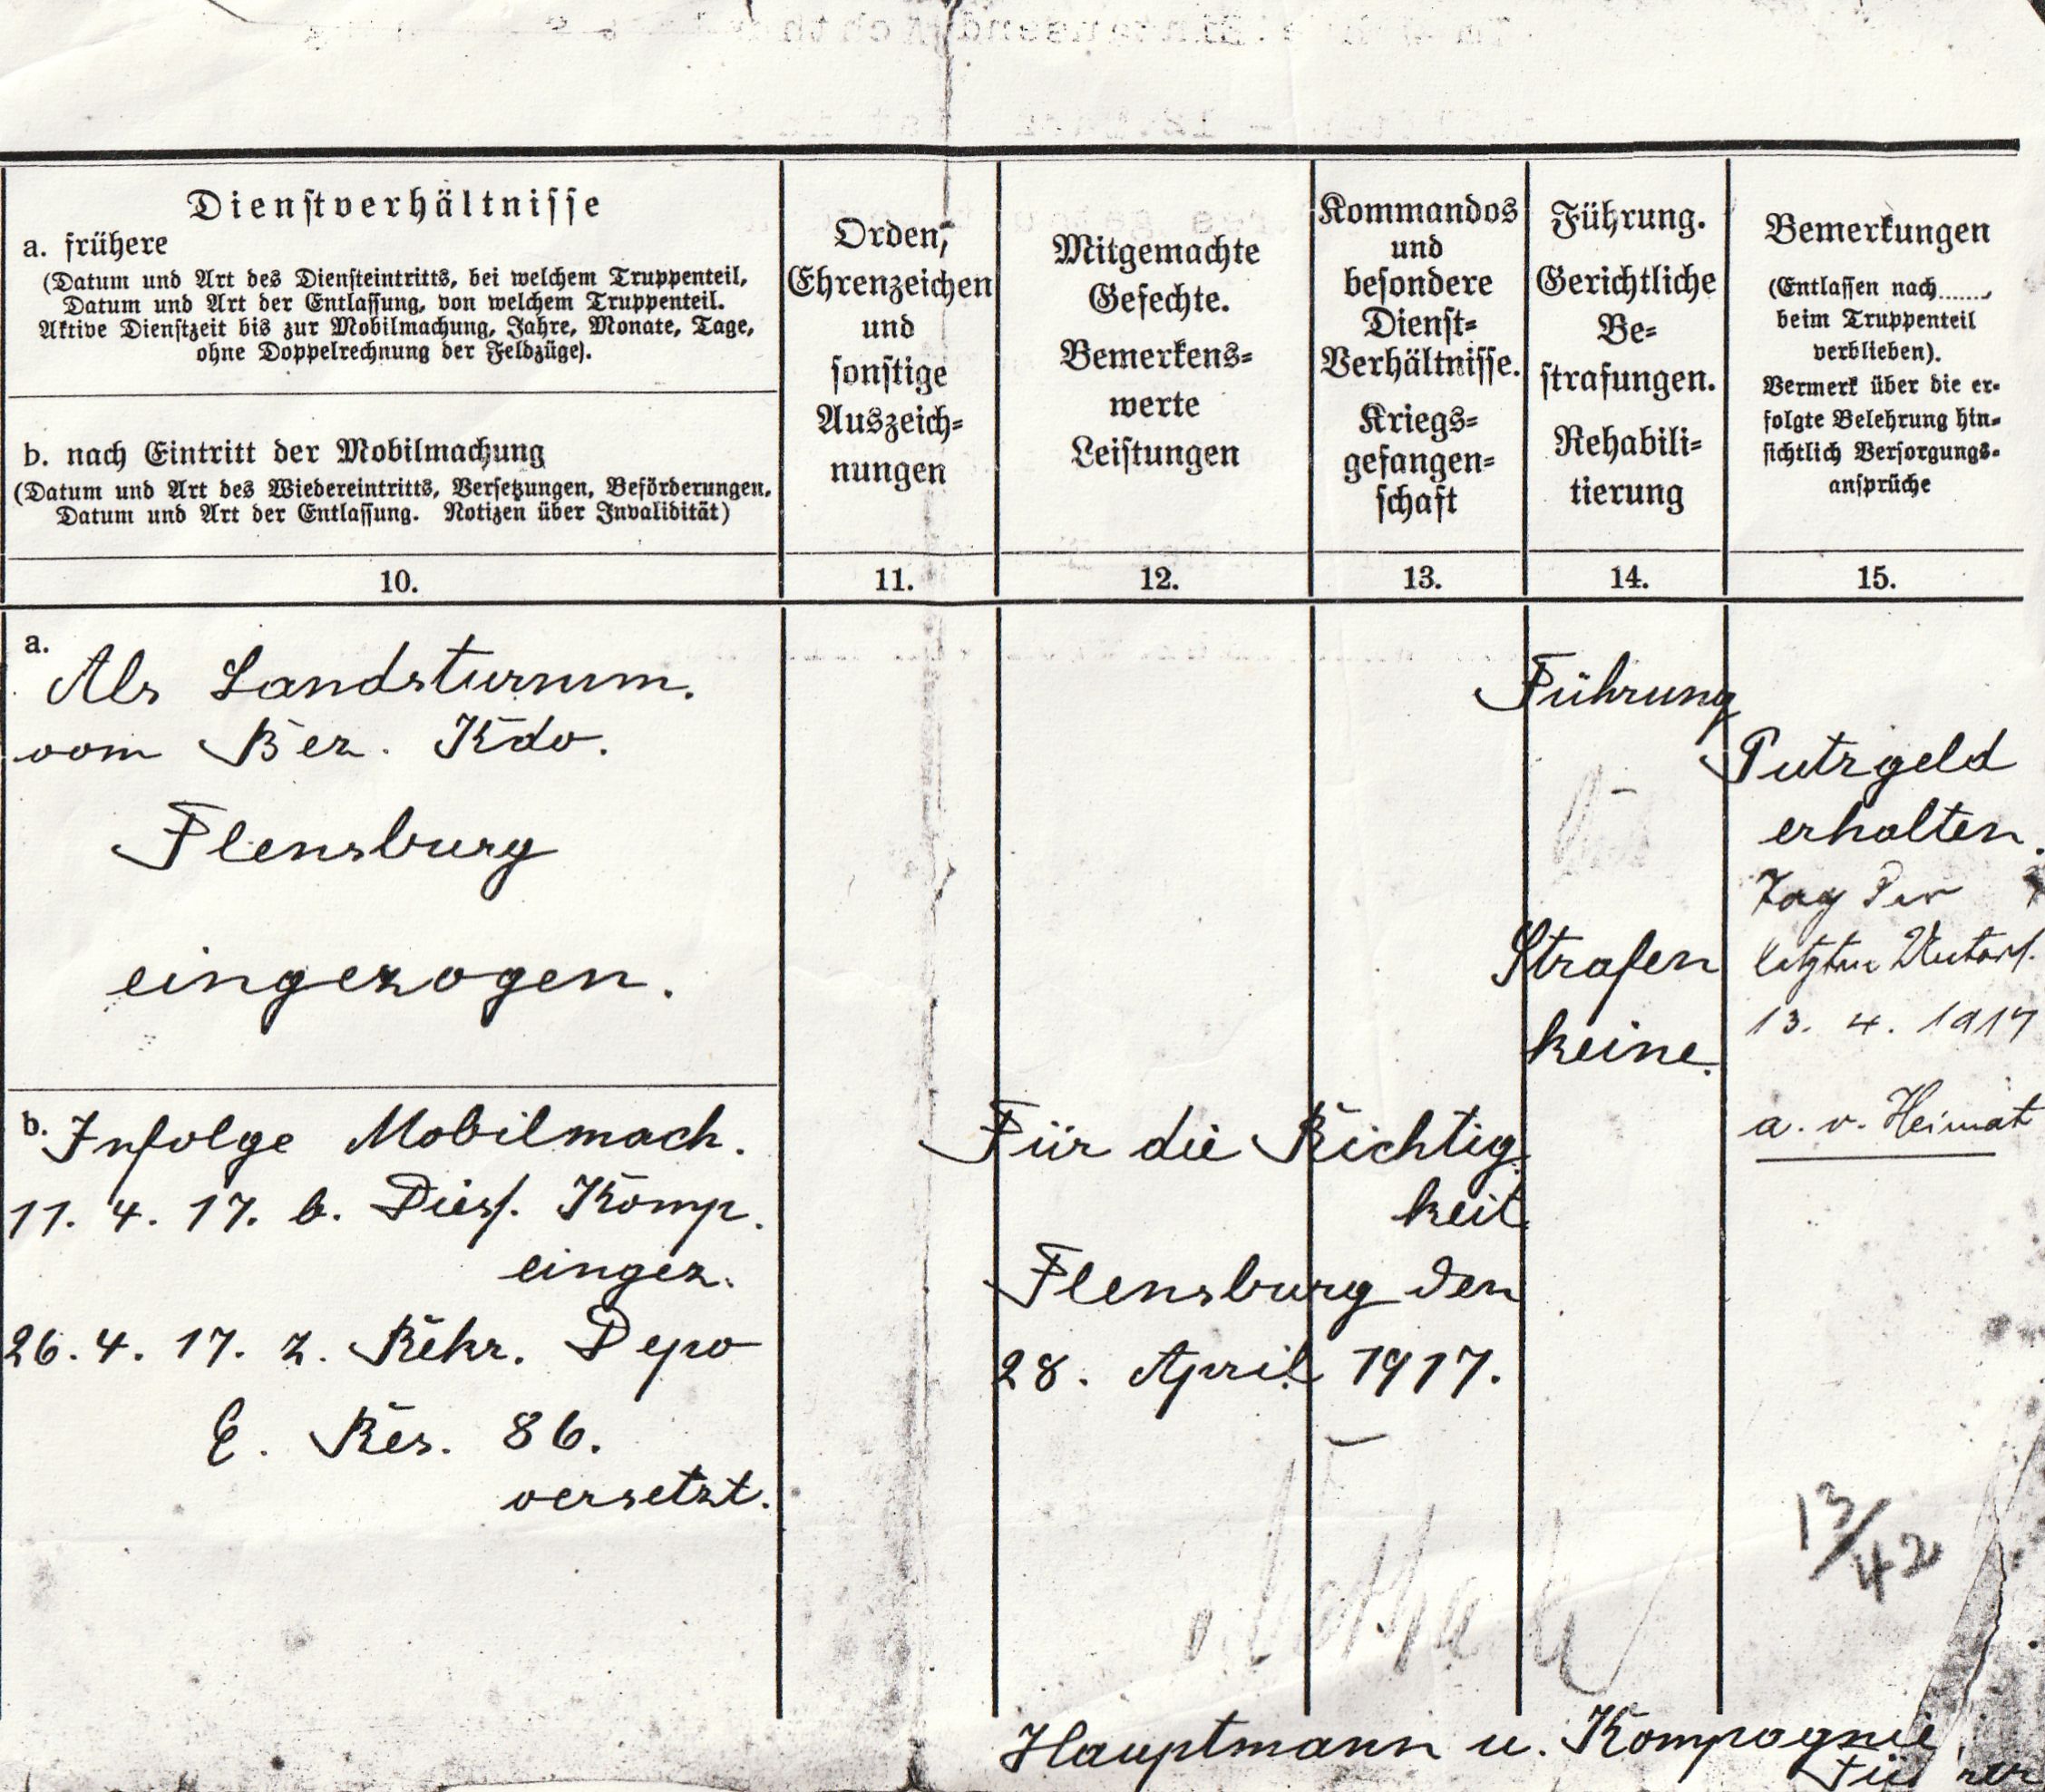 Dienstverhältnisse
a. frühere
(Datum und Art des Diensteintritts, bei welchem Truppenteil,
Datum und Art der Entlassung, von welchem Truppenteil.
Aktive Dienstzeit bis zur Mobilmachung, Jahre, Monate, Tage,
ohne Doppelrechnung der Feldzüge).
b. nach Eintritt der Mobilmachung
(Datum und Art des Wiedereintritts, Versetzungen, Beförderungen,
Datum und Art der Entlassung. Notizen über Invalidität)
Orden,
Ehrenzeichen
und
sonstige
Auszeich-
nungen
Mitgemachte
Gefechte.
Bemerkens-
werte
Leistungen
Kommandos
und
besondere
Dienst-
Verhältnisse.
Kriegs-
gefangen-
schaft
Führung.
Gerichtliche
Be-
strafungen.
Rehabili-
tierung
Bemerkungen
(Entlassen nach......,
beim Truppenteil
verblieben).
Vermerk über die er-
folgte Belehrung hin-
sichtlich Versorgungs-
ansprüche
10.
11.
12.
13.
14.
15.
a.
Als Landsturmm.
vom Bez. Kdo.
Flensburg
eingezogen.
b. Infolge Mobilmach.
11. 4. 17. b. Diesf. Komp.
eingez.
26. 4. 17. z. Rekr. Depo
E. Res. 86.
versetzt.
Für die Richtig
keit
Flensburg den
28. April 1917.
Hauptmann u. Kompagnie
Führer
Führung
Strafen
keine.
Putzgeld
erhalten.
Tag der
letzten Unters.
13. 4. 1917
a. v. Heimat
13/42